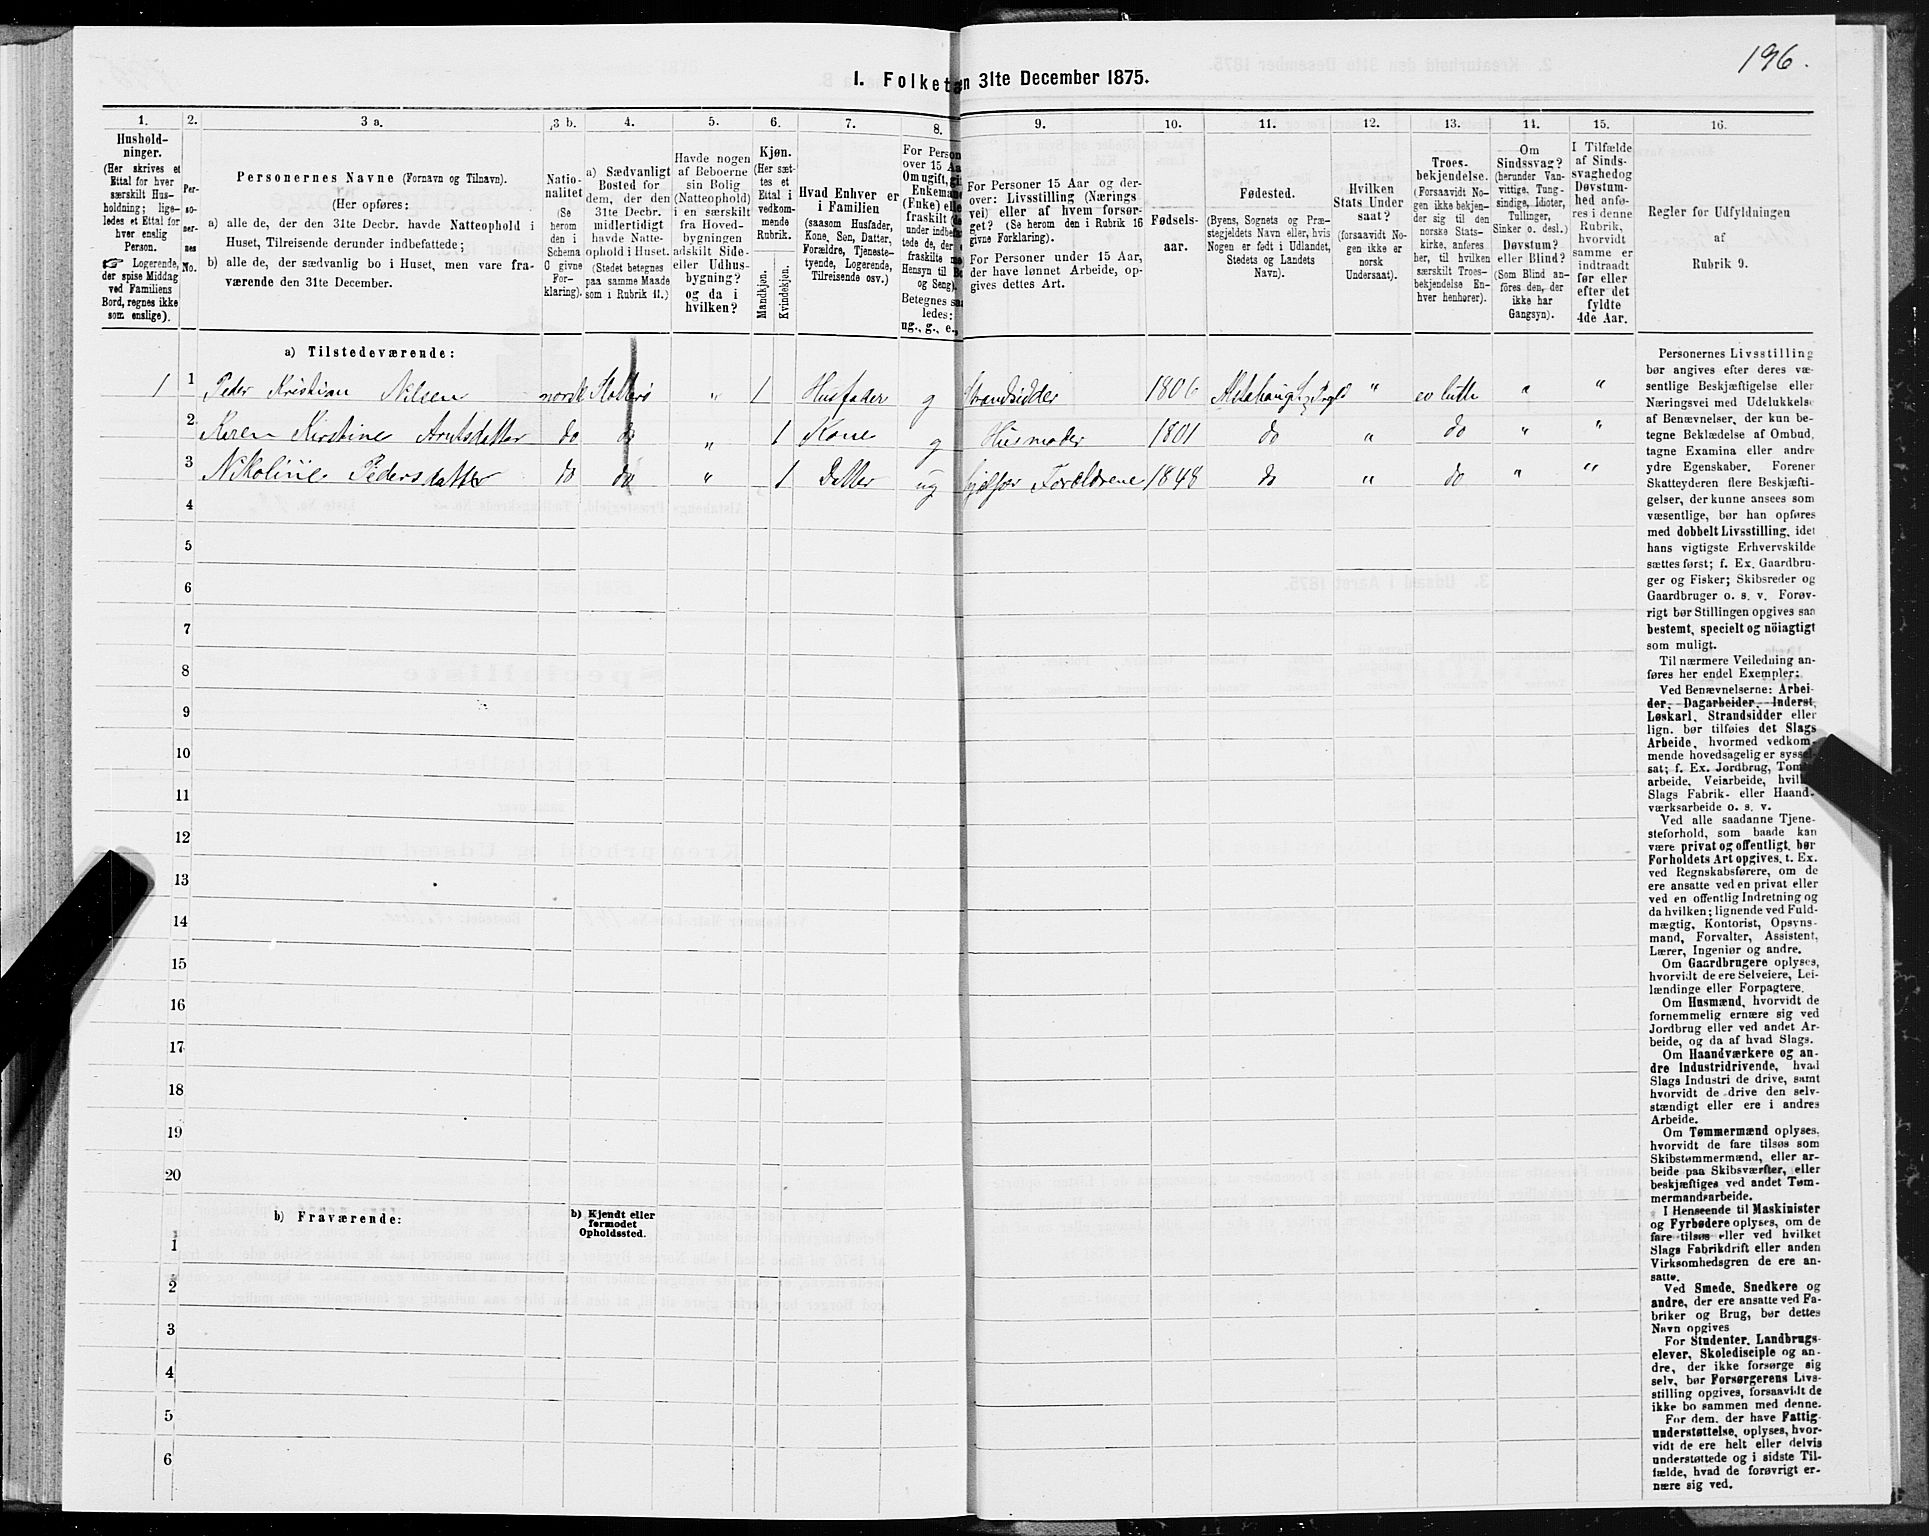 196.
I. Folket n 31te December 1875.
1. 2. 3 a. 3 b. 4. 5. 6. 7. 8. 9. 10. 11. 12. 13. 14. 15. 16.
Hushold-
ninger.
(Her skrives et
Ettal for hver
særskilt Hus-
holdning; lige-
ledes et Ettal for
hver enslig
Person.
☞ Logerende,
der spise Middag
ved Familiens
Bord, regnes ikke
som enslige).
Per-
so-
ner-
nes
No.
Personernes Navne (Fornavn og Tilnavn).
(Her opføres:
a) alle de, der den 31te Decbr. havde Natteophold i
Huset, Tilreisende derunder indbefattede;
b) alle de, der sædvanlig bo i Huset, men vare fra-
værende den 31te December.
Natio-
nalitet
(Se
herom
den i
Schema
C givne
For-
klaring).
a) Sædvanligt
Bosted for
dem, der den
31te Decbr.
midlertidigt
havde Natte-
ophold i Huset.
(Stedet betegnes
paa samme Maade
som i Rubrik 11.)
Havde nogen
af Beboerne
sin Bolig
(Natteophold)
i en særskilt
fra Hoved-
bygningen
adskilt Side-
eller Udhus-
bygning?
og da i
hvilken?
Kjøn.
(Her sæt-
tes et
Ettal i
vedkom-
mende
Rubrik.
Mandkjøn.
Kvindekjøn.
Hvad Enhver er
i Familien
(saasom Husfader,
Kone, Søn, Datter,
Forældre, Tjeneste-
tyende, Logerende,
Tilreisende osv.)
For Person
over 15 Aa
Om ugift, gi
Enkemand
(Enke) elle
fraskilt (d
under indbefat
tede de, der
fraskilte me
Hensyn til Bo
og Seng).
Betegnes saa
ledes:
ug., g., e.,
For Personer 15 Aar og der-
over: Livsstilling (Nærings
vei) eller af hvem forsør-
get? (Se herom den i Rubrik 16
givne Forklaring).
For Personer under 15 Aar,
der have lønnet Arbeide, op-
gives dettes Art.
Fødsels-
aar.
Fødested.
(Byens, Sognets og Præ-
stegjeldets Navn eller, hvis
Nogen er født i Udlandet,
Stedets og Landets
Navn).
Hvilken
Stats Under
saat?
(forsaavidt No-
gen ikke er
norsk
Undersaat).
Troes-
bekjendelse.
(Forsaavidt No-
gen ikke bekjen-
der sig til den
norske Stats-
kirke, anføres
her, til hvilken
særskilt Troes-
bekjendelse En-
hver henhører).
Om
Sindssvag?
(herunder Van-
vittige, Tung-
sindige, Idioter,
Tullinger,
Sinker o. desl.)
Døvstum?
eller Blind?
(Som Blind an-
föres den, der
ikke har
Gangsyn).
I Tilfælde
af Sinds-
svaghed og
Døvstum-
hed anfø-
res i denne
Rubrik,
hvorvidt
samme er
indtraadt
før eller
efter det
fyldte
4de Aar.
Regler for Udfyldningen
af
Rubrik 9.
a) Tilstedeværende:
1 1 Peder Kristian Nilsen norsk „ 1 Husfader g Strandsidder 1806 Alstahaug „ ev luth „ „
2 Karen Kirstine do do „ 1 Kone g Husmoder 1801 do „ do „ „
3 Nikoline Pedersdatter do do „ 1 Datter ug Forældrene 1848 do „ do „ „
4
5
6
7
8
9
10
11
12
13
14
15
16
17
18
19
20
b) Fraværende:
b) Kjendt eller
formodet
Opholdssted.
1
2
3
4
5
6
Personernes Livsstilling
bør angives efter deres væ-
sentlige Beskjæftigelse eller
Næringsvei med Udelukkelse
af Benævnelser, der kun be-
tegne Beklædelse af Ombud,
tagne Examina eller andre
ydre Egenskaber. Forener
Skatteyderen flere Beskjæfti-
gelser, der kunne ansees som
væsentlige, bør han opføres
med dobbelt Livsstilling, idet
hans vigtigste Erhvervskilde
sættes først; f. Ex. Gaardbru-
ger og Fisker; Skibsreder og
Gaardbruger o. s. v. Forøv-
rigt bør Stillingen opgives saa
bestemt, specielt og nöiagtigt
som muligt.
Til nærmere Veiledning an-
føres her endel Exempler:
Ved Benævnelserne: Arbei-
der, Dagarbeider, Inderst,
Løskarl, Strandsidder eller
lign. bør tilføies det Slags
Arbeide, hvormed vedkom-
mende hovedsagelig er syssel-
sat; f. Ex. Jordbrug, Tom
arbeide, Veiarbeide, hvil
Slags Fabrik- eller Haand-
værksarbeide o. s. v.
Ved alle saadanne Tjene-
steforhold, som baade kan
være privat og offentligt, bør
Forholdets Art opgives, t. Ex.
ved Regnskabsførere, om de
ere ansatte ved en privat eller
ved en offentlig Indretning og
da hvilken; lignende ved Fuld-
mægtig, Kontorist, Opsyns-
mand, Forvalter, Assistent,
Lærer, Ingeniør og andre.
Om Gaardbrugere oplyses,
hvorvidt de ere Selveiere, Lei-
lændinge eller Forpagtere.
Om Husmænd, hvorvidt de
fornemmelig ernære sig ved
Jordbrug eller ved andet Ar-
beide, og da af hvad Slags.
Om Haandværkere og an-
dre Industridrivende, hvad
Slags Industri de drive, samt
hvorvidt de drive den selv-
stændigt eller ere i andres
Arbeide.
Om Tømmermænd oplyses,
hvorvidt de fare tilsøs som
Skibstømmermænd, eller ar-
beide paa Skibsværfter, eller
beskjæftiges ved andet Tøm-
mermandsarbeide.
I Henseende til Maskinister
og Fyrbødere oplyses, om de
fare tilsøs eller ved hvilket
Slags Fabrikdrift eller anden
Virksomhedsgren de ere an-
satte.
Ved Smede, Snedkere og
andre, der ere ansatte ved Fa-
briker og Brug, bør dettes
Navn opgives
For Studenter, Landbrugs-
elever, Skoledisciple og an-
dre, der ikke forsørge sig
selv, bør Forsørgerens Livs-
stilling opgives, forsaavidt de
ikke bo sammen med denne.
For dem, der have Fattig-
understøttelse, oplyses, hvor-
vidt de ere helt eller delvis
understøttede og i sidste Til-
fælde, hvad de forøvrigt er-
nære sig ved.